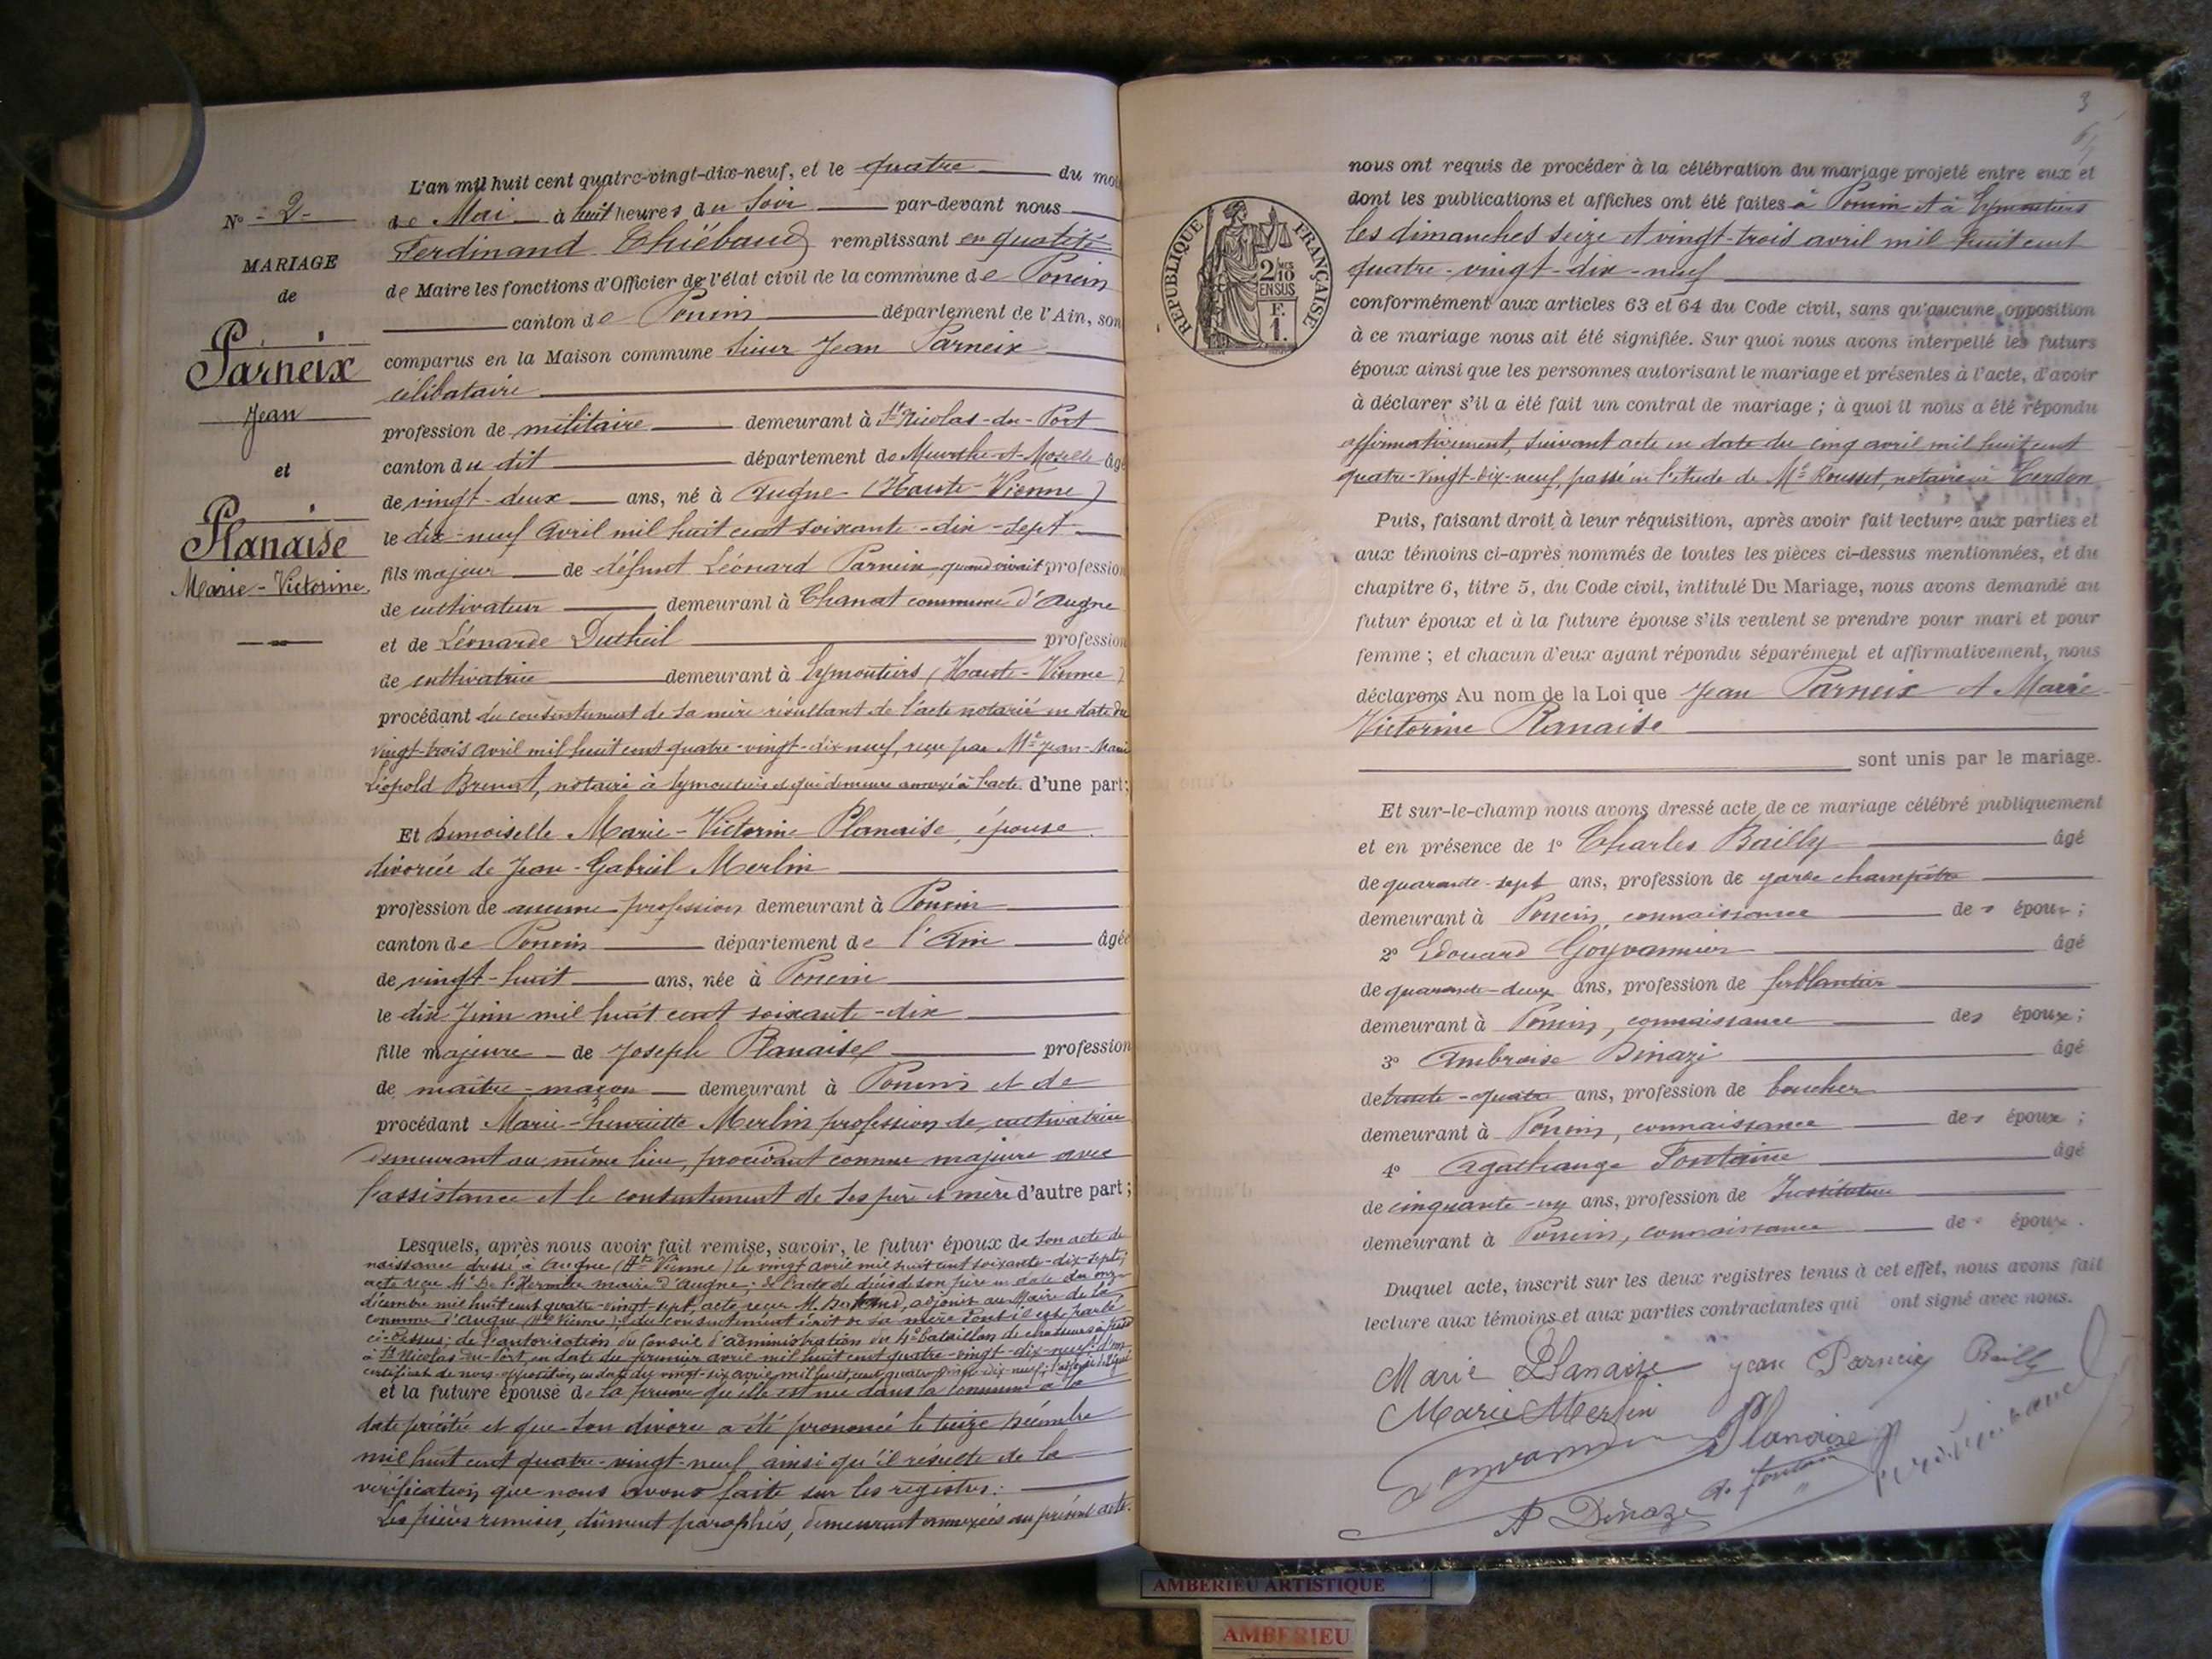 L'an mil huit cent quatre-vingt-dix-neuf, et le quatre du mois
de Mai à huit heures du Soir par-devant nous
Ferdinand Thiébaud remplissant en qualité
de Maire les fonctions d'Officier de l'état civil de la commune de Poncin
canton de Poncin département de l'Ain, son
comparus en la Maison commune Sieur Jean Parneix
célibataire
profession de militaire demeurant à St Nicolas-du-Port
canton du dit département de Meurthe-et-Moselle âgé
de vingt-deux ans, né à Augne (Haute-Vienne)
le dix-neuf Avril mil huit cent soixante-dix-sept
fils majeur de défunt Léonard Parneix, quand vivait profession
de cultivateur demeurant à Chanat commune d'Augne
et de Léonarde Dutheil profession
de cultivatrice demeurant à Eymoutiers (Haute-Vienne)
procédant du consentement de sa mère résultant de l'acte notarié en date du
vingt-trois avril mil huit cent quatre-vingt-dix neuf, reçu par Me Jean-Marie
Léopold Brunat, notaire à Eymoutiers et qui demeure annexé à l'acte d'une part;
Et demoiselle Marie-Victorine Planaise, épouse
divorcée de Jean-Gabriel Merlin
profession de aucune profession demeurant à Poncin
canton de Poncin département de l'Ain âgée
de vingt-huit ans, née à Poncin
le dix Juin mil huit cent soixante-dix
fille majeure de Joseph Planaise profession
de maître-maçon demeurant à Poncin et de
procédant Marie-henriette Merlin profession de cultivatrice
demeurant au même lieu, procédant comme majeure avec
l'assistance et le consentement de ses père et mère d'autre part;
Lesquels, après nous avoir fait remise, savoir, le futur époux de son acte de
naissance dressé à Augne (Hte Vienne) le vingt avril mil huit cent soixante-dix-sept;
acte reçu Mr De l'Hermite maire d'Augne; de l'acte de décès de son père en date du onze
décembre mil huit cent quatre-vingt-sept, acte reçu M. adjoint au Maire de la
commune d'Augne (Hte Vienne); du consentement écrit de sa mère dont il est parlé
ci-dessus; de l'autorisation du Conseil d'administration du 4e bataillon de chasseurs à pied
à St Nicolas-du-Port, en date du premier avril mil huit cent quatre-vingt-dix-neuf; d'un
certificat de non-opposition en date du vingt-six avril mil huit cent quatre vingt-dix neuf;
et la future épouse de la preuve qu'elle est née dans la commune à la
date précitée et que son divorce a été prononcé le treize décembre
mil huit cent quatre-vingt-neuf ainsi qu'il résulte de la
vérification que nous avons faite sur les registres.
Les pièces remises, dûment paraphées, demeurent annexées au présent acte.
No - 2 -
MARIAGE
de
Parneix
Jean
et
Planaise
Marie-Victorine
3
RÉPUBLIQUE FRANÇAISE
2/10 MES
EN SUS
F.
1.
nous ont requis de procéder à la célébration du mariage projeté entre eux et
dont les publications et affiches ont été faites à Poncin et à Eymoutiers
les dimanches seize et vingt-trois avril mil huit cent
quatre-vingt-dix-neuf
conformément aux articles 63 et 64 du Code civil, sans qu'aucune opposition
à ce mariage nous ait été signifiée. Sur quoi nous avons interpellé les futurs
époux ainsi que les personnes autorisant le mariage et présentes à l'acte, d'avoir
à déclarer s'il a été fait un contrat de mariage; à quoi il nous a été répondu
affirmativement, suivant acte en date du cinq avril mil huit cent
quatre-vingt-dix-neuf, passé en l'étude de Me Rousset, notaire à Cerdon
Puis, faisant droit à leur réquisition, après avoir fait lecture aux parties et
aux témoins ci-après nommés de toutes les pièces ci-dessus mentionnées, et du
chapitre 6, titre 5, du Code civil, intitulé Du Mariage, nous avons demandé au
futur époux et à la future épouse s'ils veulent se prendre pour mari et pour
femme; et chacun d'eux ayant répondu séparément et affirmativement, nous
déclarons Au nom de la Loi que Jean Parneix et Marie
Victorine Planaise
sont unis par le mariage.
Et sur-le-champ nous avons dressé acte de ce mariage célébré publiquement
et en présence de 1° Charles Bailly âgé
de quarante-sept ans, profession de garde champêtre
demeurant à Poncin, connaissance des époux;
2° Edouard Goyvannier âgé
de quarante-deux ans, profession de ferblantier
demeurant à Poncin, connaissance des époux;
3° Ambroise Dinazi âgé
de trente-quatre ans, profession de boucher
demeurant à Poncin, connaissance des époux;
4° Agathange Fontaine âgé
de cinquante-un ans, profession de Instituteur
demeurant à Poncin, connaissance des époux.
Duquel acte, inscrit sur les deux registres tenus à cet effet, nous avons fait
lecture aux témoins et aux parties contractantes qui ont signé avec nous.
Marie Planaise Jean Parneix Bailly
Marie Merlin
Goyvannier Planaise
A. Fontaine
A Dinazi
AMBERIEU ARTISTIQUE
AMBERIEU